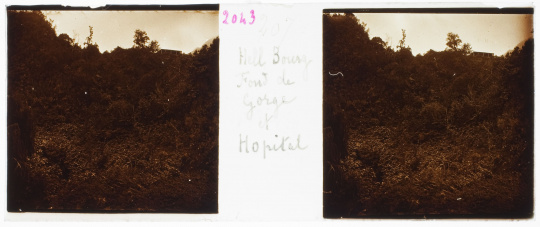 2043
207
Hill Bourg
Fond de
Gorge
et
Hopital